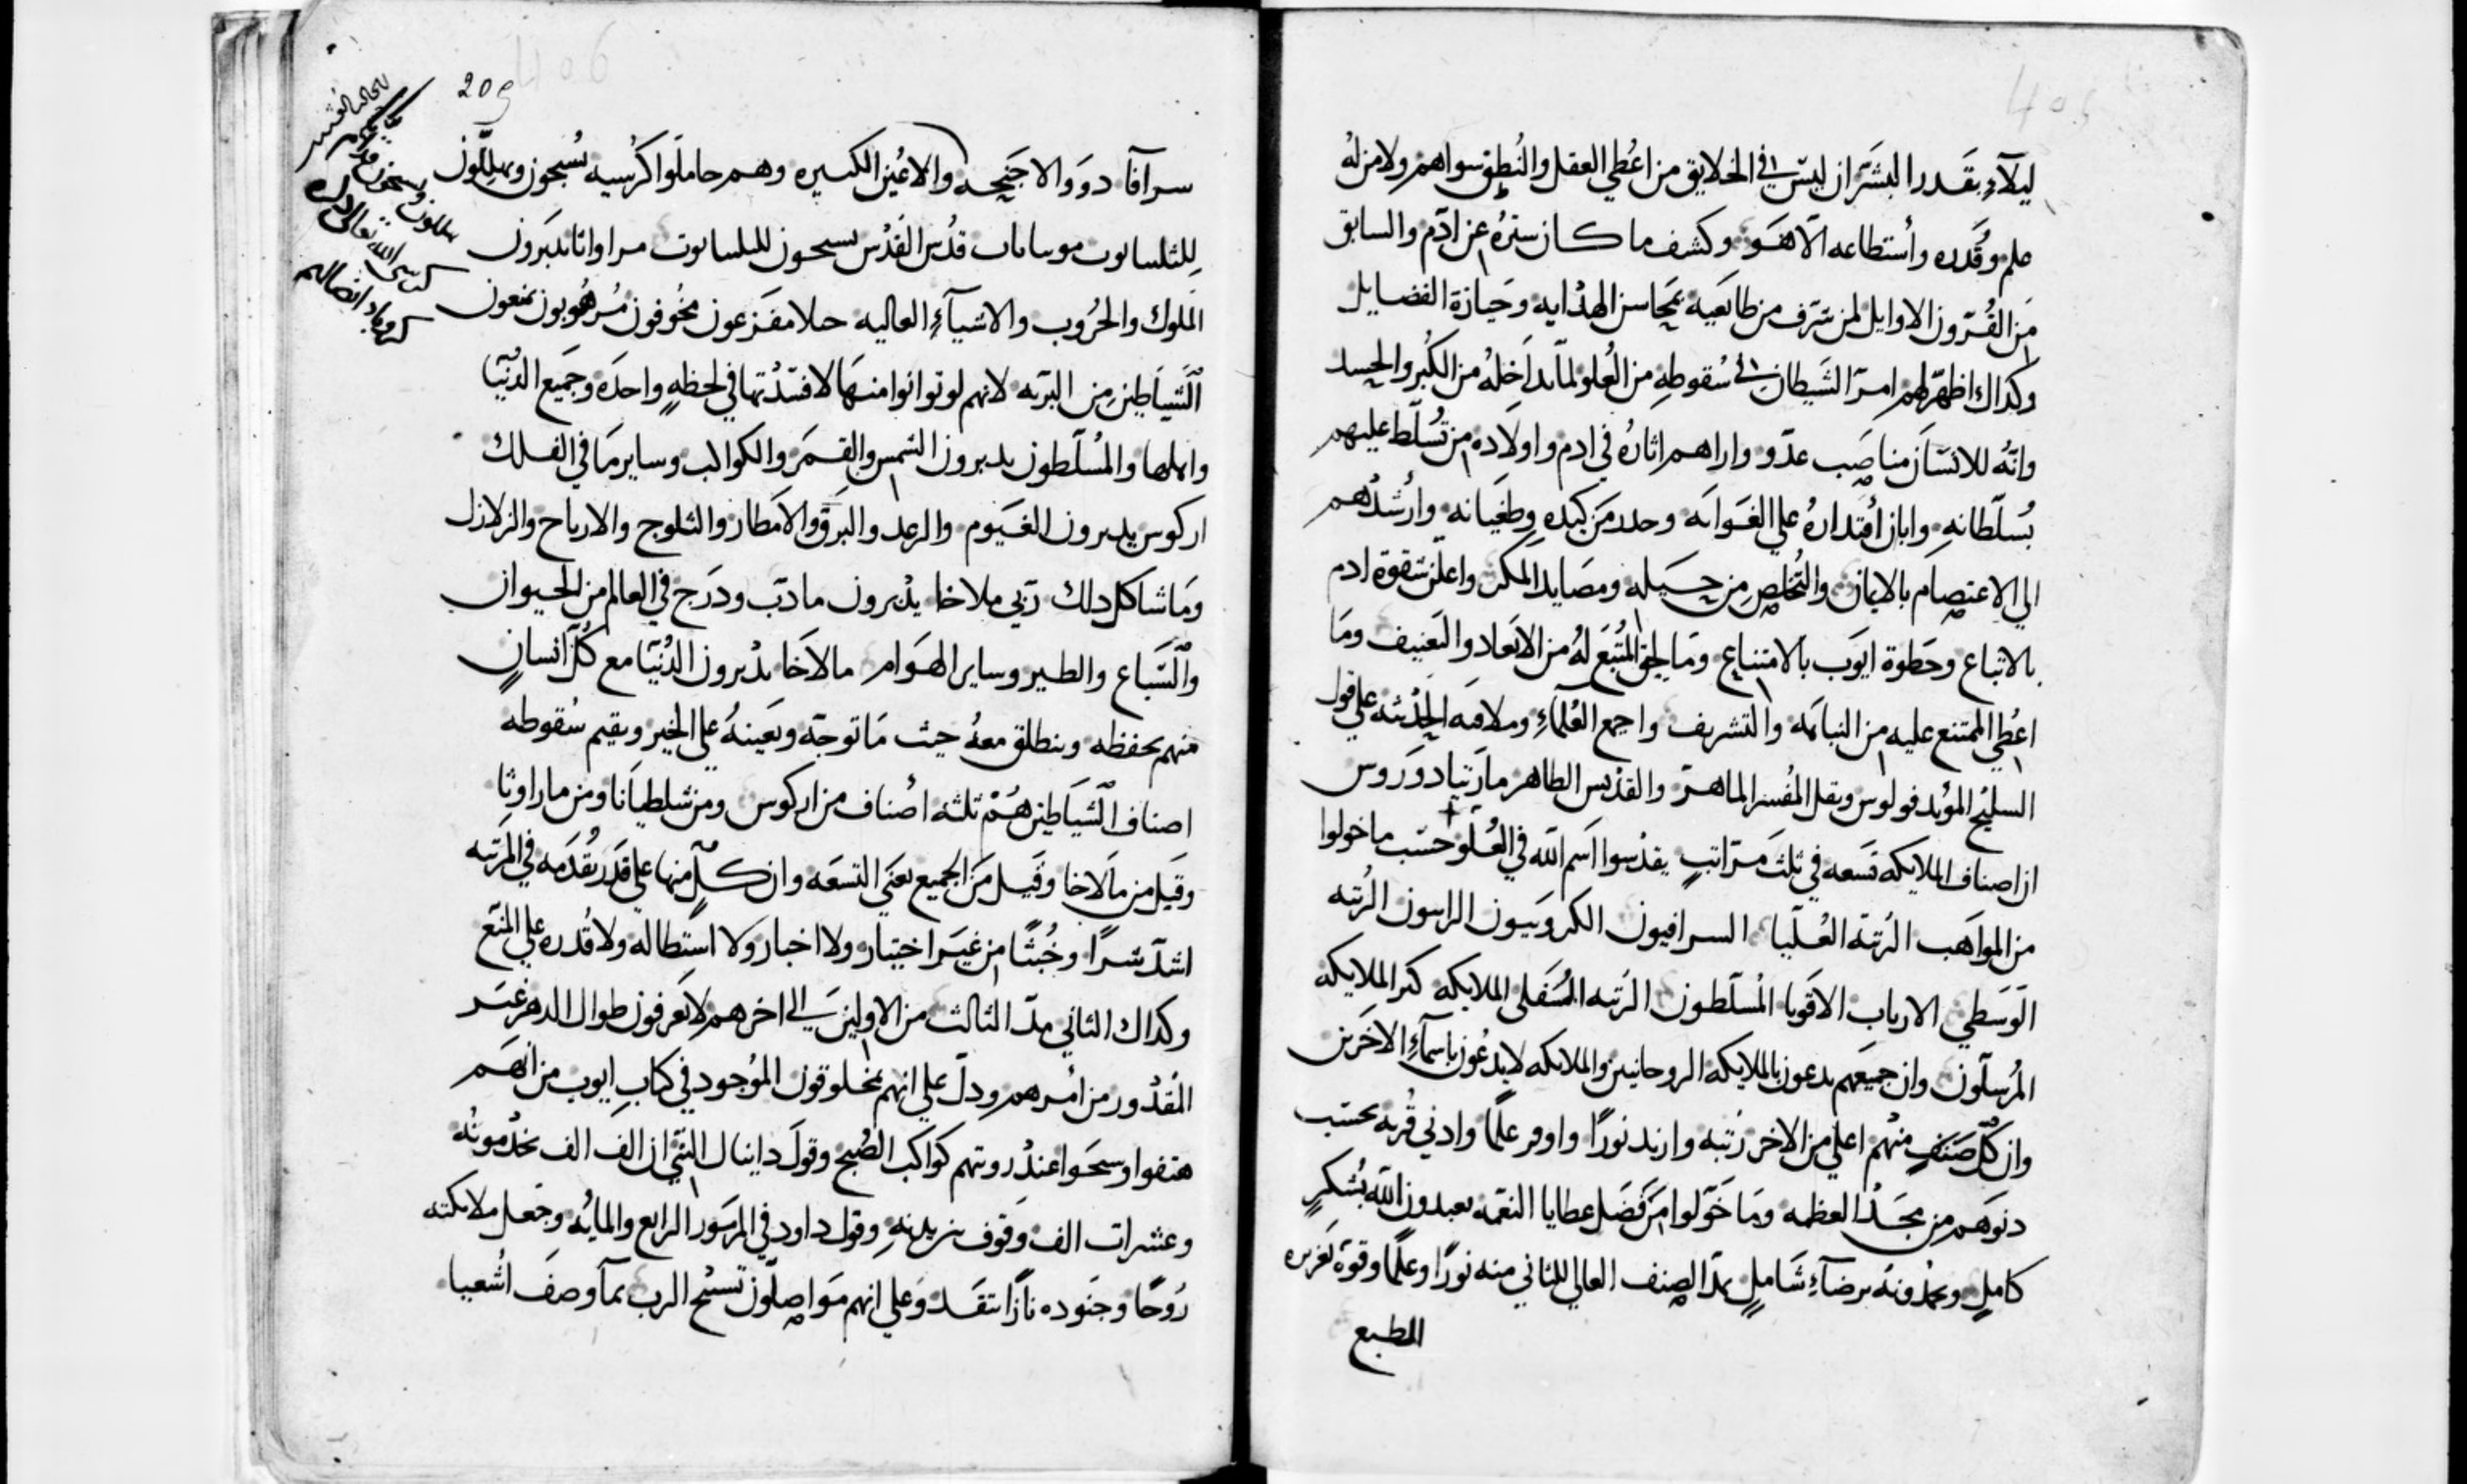 405
ليلآء بقدر البشر ان ليس في الخلايق من اعطي العقل والنطق سواهم ولا من له
علم وقدره واستطاعه الا هو وكشف ما كان ستره عن ادم والسابق
من القرون الاوايل لمن شرف من طايعيه بمحاسن الهدايه وحيازة الفضايل
وكداك اظهر لهم امر الشيطان في سقوطه من العلو لما تداخله من الكبر والحسد
وانه للانسان مناصب عدو واراهم اثاره في ادم واولاده من تسلط عليهم
بسلطانه وابان اقتداره علي الغوايه وحدد من كيده وطغيانه وارشدهم
الي الاعتصام بالايمان والتخلص من حيله ومصايد المكر واعلن شقوة ادم
بالاتباع وحظوة ايوب بالامتناع وما لحق المتبع له من الابعاد والتعنيف وما
اعطي الممتنع عليه من النباهه والتشريف واجمع العلمآء وملافنه الحدثه علي قول
السليح المويد فولوس ونقل المفسر الماهر والقديس الطاهر مار تيادوروس
ان اصناف الملايكه تسعه في ثلث مراتب يقدسوا اسم الله في العلو حسب ما خولوا
من المواهب الرتبه العليا السرافيون الكروبيون الراسون الرتبه
الوسطي الارباب الاقويا المسلطون الرتبه السفلي الملايكه كبر الملايكه
المرسلون وان جميعهم يدعون بالملايكه الروحانيين والملايكه لا يدعون باسمآء الاخرين
وان كل صنف منهم اعلي من الاخر رتبه وازيد نورًا واوفر علمًا وادني قربه بحسب
دنوهم من مجد العظمه وما خولوا من فضل عطايا النعمه يعبدون الله بشكرٍ
كاملٍ ويحمدونه برضآء شاملٍ يمد الصنف العالي للثاني منه نورًا وعلمًا وقوة غزيره
المطبع
406
209
سرآفا دوو الاجنحه والاعين الكثيره وهم حاملوا كرسيه يسبحون ويهللون
قدس القدس يسبحون مراواثا يدبرون
الملوك والحروب والاشيآء العاليه حيلا مفزعون مخوفون مرهوبون يمنعون
الشياطين من البريه لانهم لو توانوا عنها لافسدتها في لحظهٍ واحده وجميع الدنيا
واهلها والمسلطون يدبرون الشمس والقمر والكواكب وساير ما في الفلك
اركوس يدبرون الغيوم والرعد والبرق والامطار والثلوج والارياح والزلازل
وما شاكل دلك ربي ملاخا يدبرون ما دب ودرج في العالم من الحيوان
والسباع والطير وساير الهوام مالاخا يدبرون الدنيا مع كل انسانٍ
منهم يحفظه وينطلق معه حيث ما توجه ويعينه علي الخير ويقيم سقوطه
اصناف الشياطين هم ثلثه اصناف من اركوس ومن شلطيانا ومن ماراوثا
وقيل من مالاخا وقيل من الجميع يعني التسعه وان كلٍ منها علي قدر تقدمه في المرتبه
اشد شرًا وخبثًا من غير اختيار ولا اخبار ولا استطاله ولا قدره علي المنع
وكداك الثاني يمد الثالث من الاولين الي اخرهم لا يعرفون طوال الدهر غير
المقدور من امرهم ودل علي انهم مخلوقون الموجود في كتاب ايوب من انهم
هتفوا وسبحوا عند رويتهم كواكب الصبح وقول دانيال النبي ان الف الف يخدمونه
وعشرات الف وقوف بين يديه وقول داود في المزمور الرابع والمايه وجعل ملايكته
روحًا وجنوده نارًا تتقد وعلي انهم مواصلون تسبيح الرب بمآ وصف اشعيا